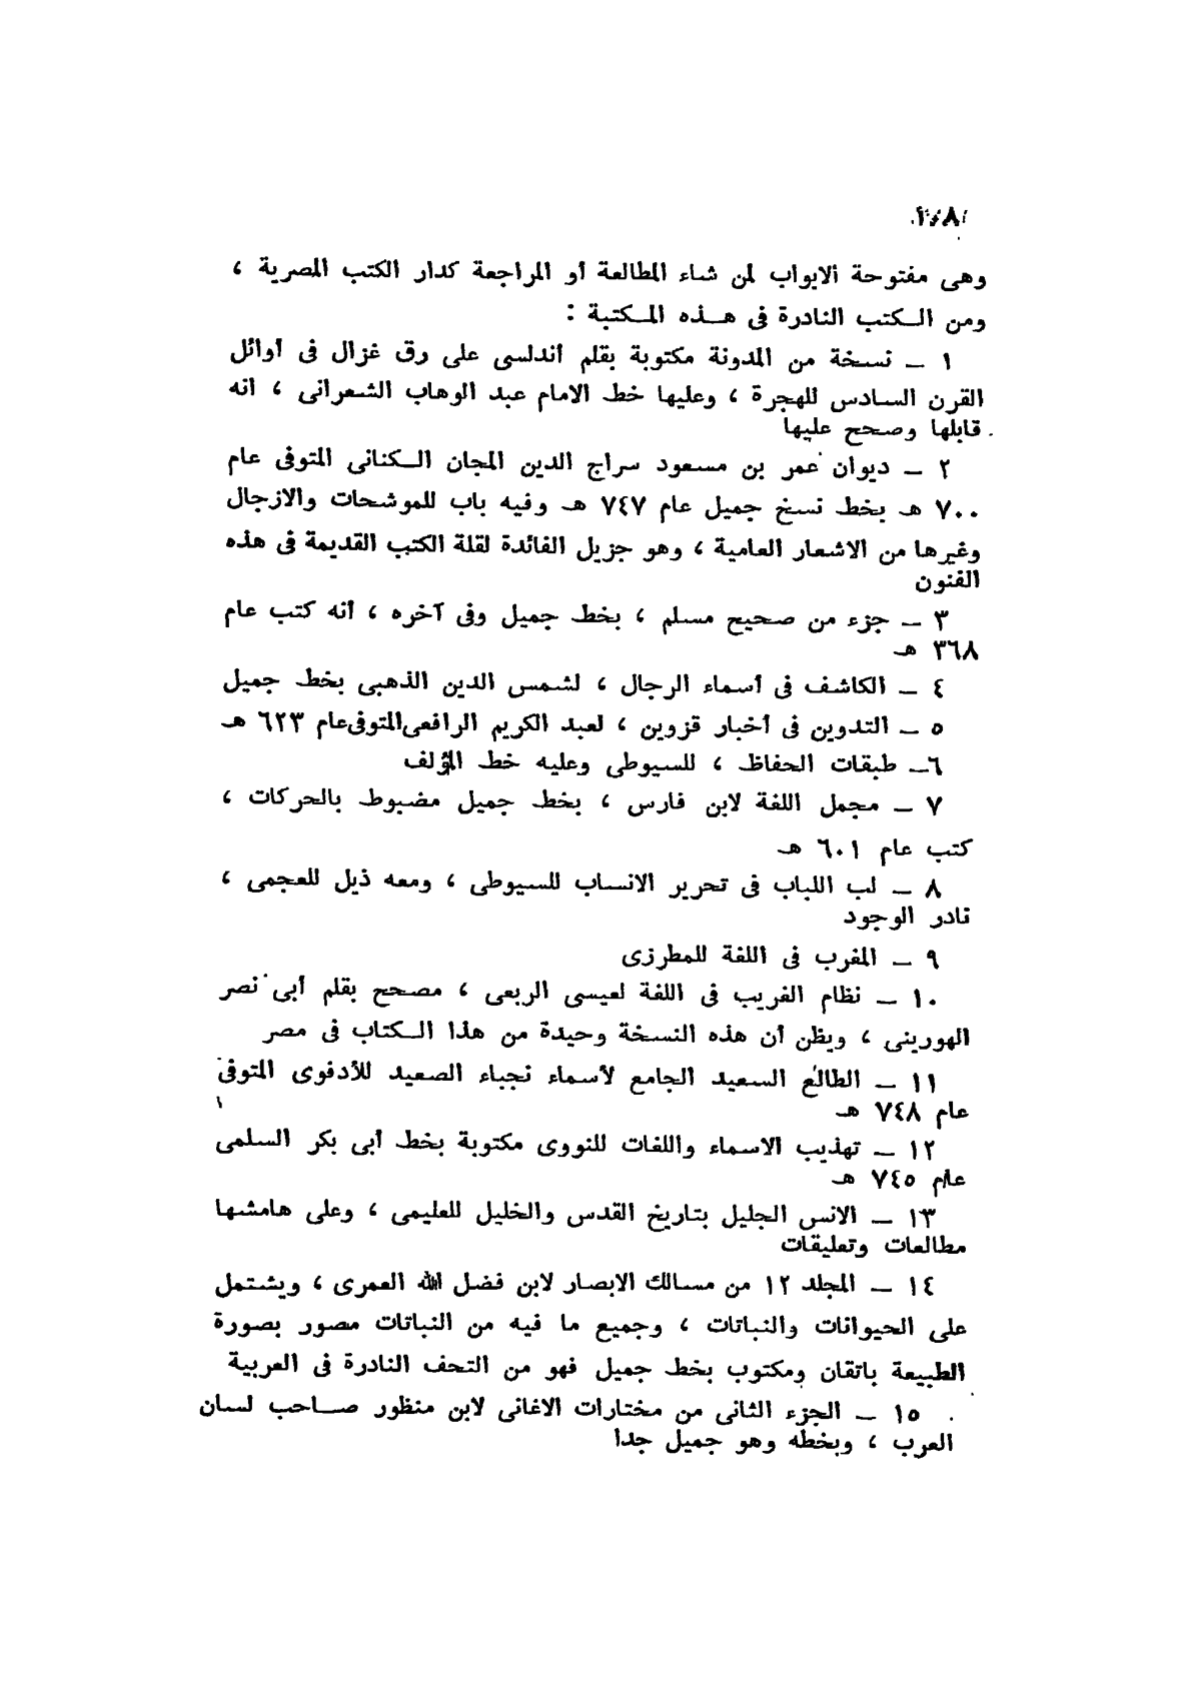 وهى مفتوحة الابواب لمن شاء المطالعة أو المراجعة كدار الكتب المصرية ،
ومن الكتب النادرة فى هذه المكتبة :
١ ـ نسخة من المدونة مكتوبة بقلم أندلسى على رق غزال فى أوائل
القرن السادس للهجرة ، وعليها خط الامام عبد الوهاب الشعرانى ، انه
قابلها وصحح عليها
٢ ـ ديوان عمر بن مسعود سراج الدين المجان الكنانى المتوفى عام
٧٠٠ هـ بخط نسخ جميل عام ٧٤٧ هـ وفيه باب للموشحات والازجال
وغيرها من الاشعار العامية ، وهو جزيل الفائدة لقلة الكتب القديمة فى هذه
الفنون
٣ ـ جزء من صحيح مسلم ، بخط جميل وفى آخره ، أنه كتب عام
٣٦٨ هـ
٤ ـ الكاشف فى أسماء الرجال ، لشمس الدين الذهبى بخط جميل
٥ ـ التدوين فى أخبار قزوين ، لعبد الكريم الرافعى المتوفى عام ٦٢٣ هـ
٦ـ طبقات الحفاظ ، للسيوطى وعليه خط المؤلف
٧ ـ مجمل اللغة لابن فارس ، بخط جميل مضبوط بالحركات ،
كتب عام ٦٠١ هـ
٨ ـ لب اللباب فى تحرير الانساب للسيوطى ، ومعه ذيل للعجمى ،
نادر الوجود
٩ ـ المغرب فى اللغة للمطرزى
١٠ ـ نظام الغريب فى اللغة لعيسى الربعى ، مصحح بقلم أبى نصر
الهورينى ، ويظن أن هذه النسخة وحيدة من هذا الكتاب فى مصر
١١ ـ الطالع السعيد الجامع لأسماء نجباء الصعيد للأدفوى المتوفى
عام ٧٤٨ هـ
١٢ ـ تهذيب الاسماء واللغات للنووى مكتوبة بخط أبى بكر السلمى
عام ٧٤٥ هـ
١٣ ـ الانس الجليل بتاريخ القدس والخليل للعليمى ، وعلى هامشها
مطالعات وتعليقات
١٤ ـ المجلد ١٢ من مسالك الابصار لابن فضل الله العمرى ، ويشتمل
على الحيوانات والنباتات ، وجميع ما فيه من النباتات مصور بصورة
الطبيعة باتقان ومكتوب بخط جميل فهو من التحف النادرة فى العربية
١٥ ـ الجزء الثانى من مختارات الاغانى لابن منظور صاحب لسان
العرب ، وبخطه وهو جميل جدا